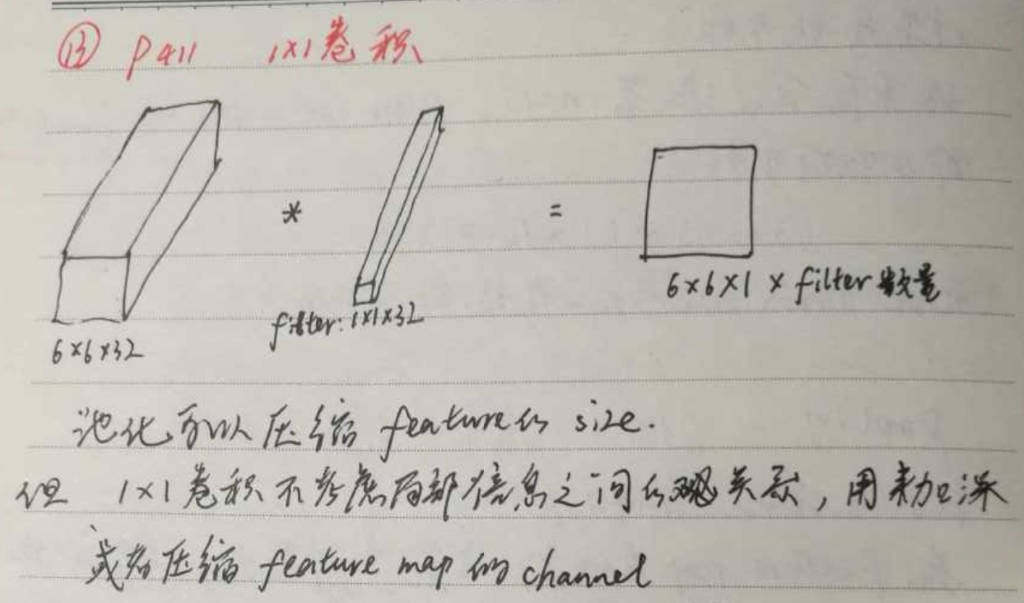 ⑬ P411 1×1卷积
* =
6×6×1 × filter 数量
filter: 1×1×32
6×6×32
池化可以压缩 feature的 size.
但 1×1卷积不考虑局部信息之间的关系，用来加深
或者压缩 feature map 的 channel